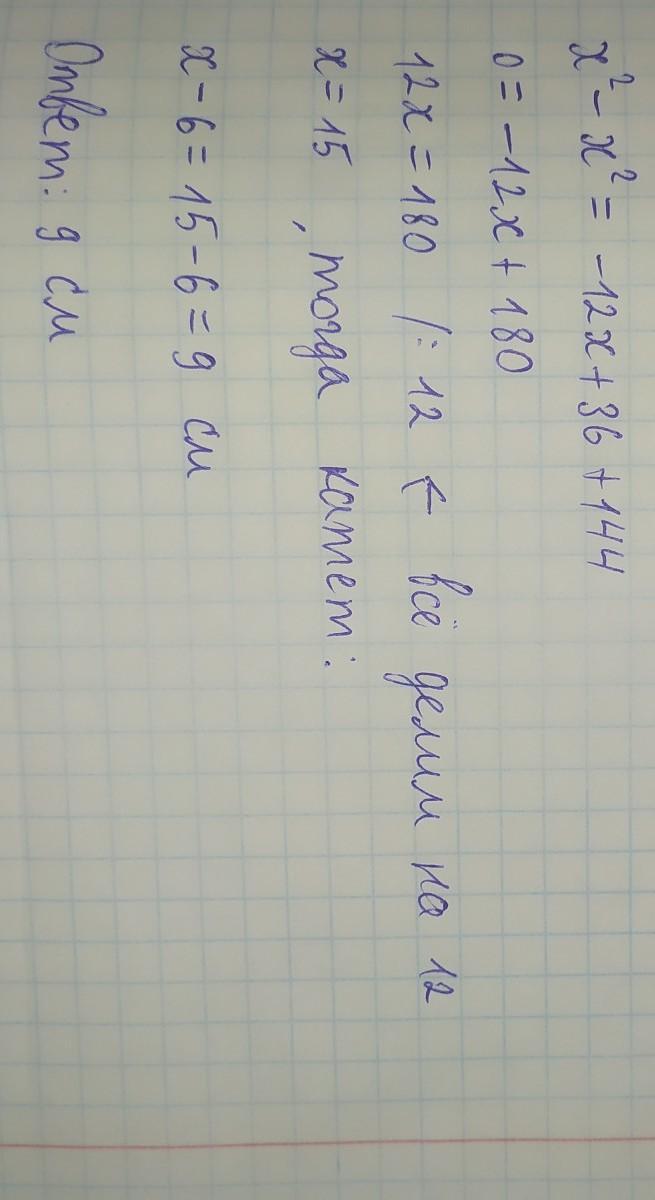 x² - x² = -12x + 36 + 144
0 = -12x + 180
12x = 180 /: 12 ← всё делим на 12
x = 15 , тогда катет:
x - 6 = 15 - 6 = 9 см
Ответ: 9 см